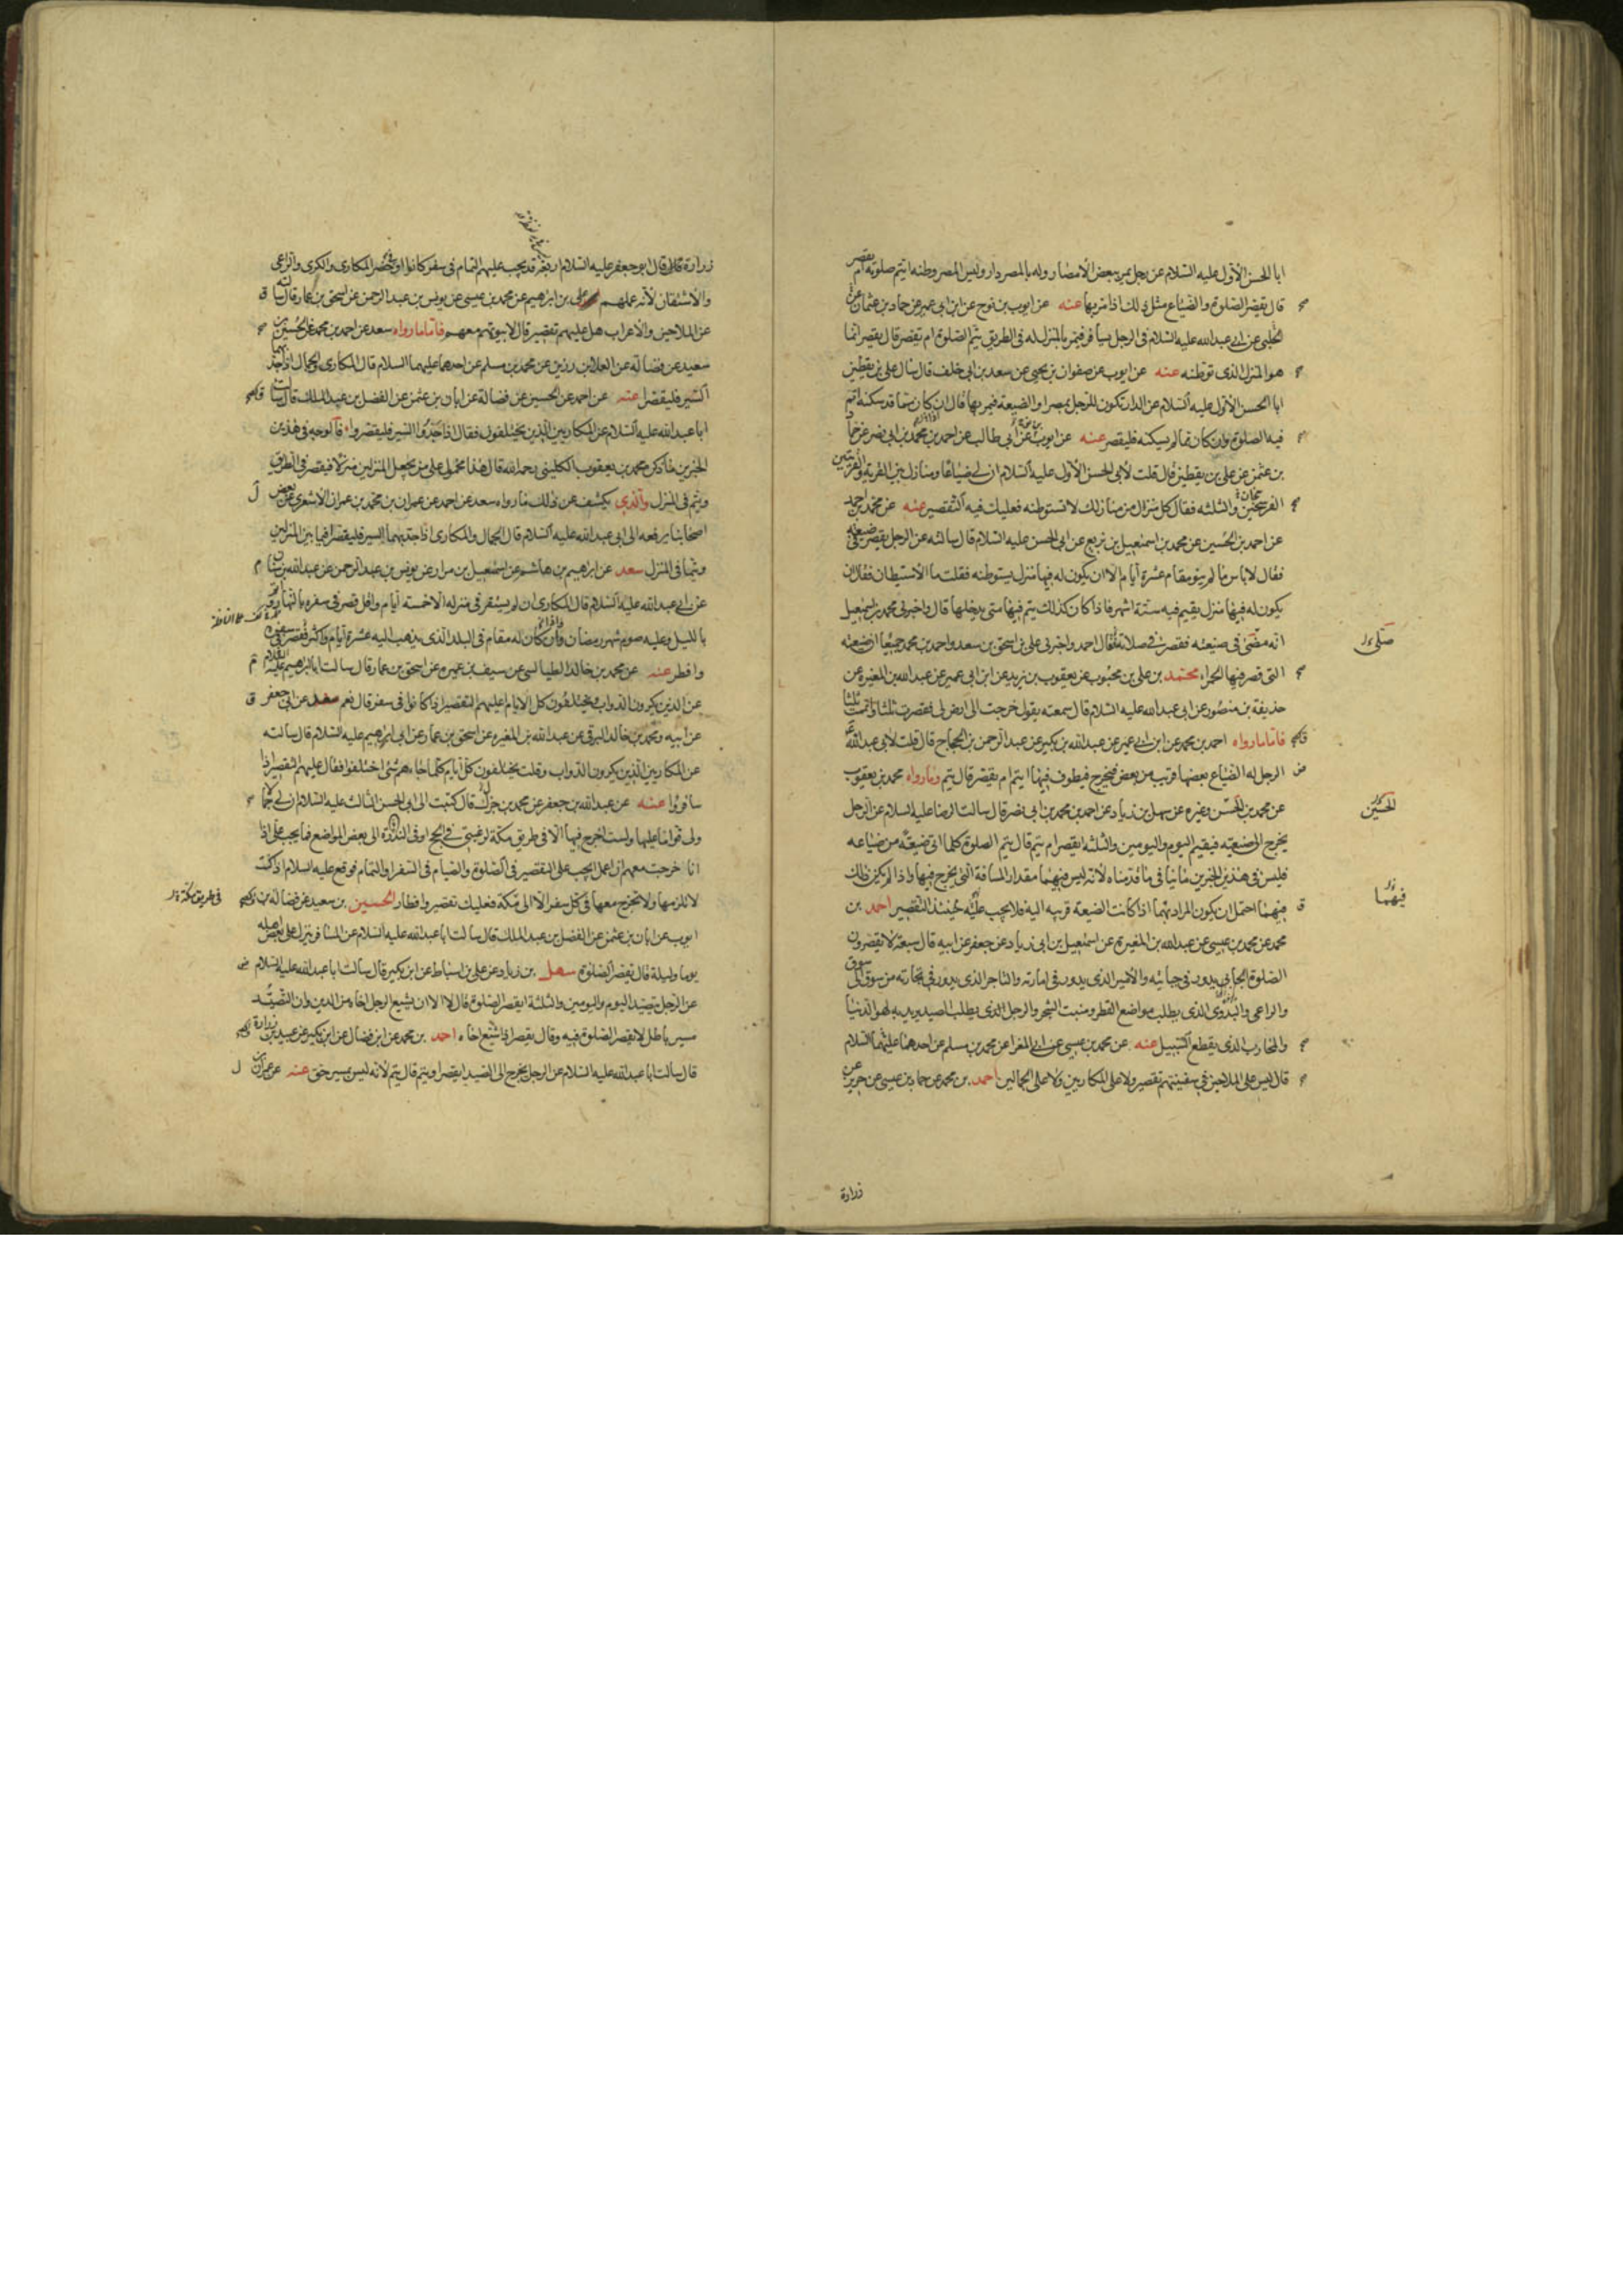 ابا الحسن الاول عليه السلام عن رجل يمر ببعض الامصار وله بالمصر دار وليس المصر وطنه ايتم صلوته ام يقصر
قال يقصر الصلوة والضياع مثل ذلك اذا مر بها عنه عن ايوب بن نوح عن ابن ابي عمير عن حماد بن عثمان عن
الحلبي عن ابي عبد الله عليه السلام في الرجل يسافر فيمر بالمنزل له في الطريق يتم الصلوة ام يقصر قال يقصر انما
هو المنزل الذي توطنه عنه عن ايوب عن صفوان بن يحيى عن سعد بن ابي خلف قال سال علي بن يقطين
ابا الحسن الاول عليه السلام عن الدار تكون للرجل بمصر او الضيعة فيمر بها قال ان كان مما قد سكنه اتم
فيه الصلوة وان كان مما لم يسكنه فليقصر عنه عن ايوب عن ابي طالب عن احمد بن محمد بن ابي نصر عن حماد
بن عثمن عن علي بن يقطين قال قلت لابي الحسن الاول عليه السلام ان لي ضياعا ومنازل بين القرية والقريتين
الفرسخين والثلثه فقال كل منزل من منازلك لا تستوطنه فعليك فيه التقصير عنه عن محمد بن احمد
عن احمد بن الحسين عن محمد بن اسمعيل بن بزيع عن ابي الحسن عليه السلام قال سالته عن الرجل يقصر في ضيعته
فقال لا باس ما لم ينو مقام عشرة ايام الا ان يكون له فيها منزل يستوطنه فقلت ما الاستيطان فقال ان
يكون له فيها منزل يقيم فيه ستة اشهر فاذا كان كذلك يتم فيها متى يدخلها قال واخبرني محمد بن اسمعيل
انه صلى في ضيعته فقصر في صلاته قال احمد واخبرني علي بن اسحق بن سعد واحمد بن محمد جميعا ان ضيعته
صلى
التي قصر فيها الحمراء محمد بن علي بن محبوب عن يعقوب بن يزيد عن ابن ابي عمير عن عبد الله بن المغيرة عن
حذيفة بن منصور عن ابي عبد الله عليه السلام قال سمعته يقول خرجت الى ارض لي فقصرت ثلثا واتممت ثلثا
فاما ما رواه احمد بن محمد عن ابن ابي عمير عن عبد الله بن بكير عن عبد الرحمن بن الحجاج قال قلت لابي عبد الله
الرجل له الضياع بعضها قريب من بعض فيخرج فيطوف فيها ايتم ام يقصر قال يتم وما رواه محمد بن يعقوب
عن محمد بن الحسن وغيره عن سهل بن زياد عن احمد بن محمد بن ابي نصر قال سالت الرضا عليه السلام عن الرجل
الحسين
يخرج الى ضيعته فيقيم اليوم واليومين والثلثه ايقصر ام يتم قال يتم الصلوة كلما اتى ضيعة من ضياعه
فليس في هذين الخبرين ما ينافي ما قدمناه لانه ليس فيهما مقدار المسافة التي يخرج فيها واذا لم يكن ذلك
فيهما احتمل ان يكون المراد بهما اذا كانت الضيعة قريبه اليه فلا يجب عليه حينئذ التقصير احمد بن
فيهما
محمد عن محمد بن عيسى عن عبد الله بن المغيرة عن اسمعيل بن ابي زياد عن جعفر عن ابيه قال سبعة لا يقصرون
الصلوة الجابي يدور في جبايته والامير الذي يدور في امارته والتاجر الذي يدور في تجارته من سوق الى سوق
والراعي والبدوي الذي يطلب مواضع القطر ومنبت الشجر والرجل الذي يطلب الصيد يريد به لهو الدنيا
والمحارب الذي يقطع السبيل عنه عن محمد بن عيسى عن ابي المغرا عن محمد بن مسلم عن احدهما عليهما السلام
قال ليس على الملاحين في سفينتهم تقصير ولا على المكاريين ولا على الجمالين احمد بن محمد عن حماد بن عيسى عن حريز عن
زرارة
زرارة قال قال ابو جعفر عليه السلام اربعة قد يجب عليهم التمام في سفر كانوا او حضر المكاري والكري والراعي
والاشتقان لانه عملهم علي بن ابراهيم عن محمد بن عيسى عن يونس بن عبد الرحمن عن اسحق بن عمار قال سالته
عن الملاحين والاعراب هل عليهم تقصير قال لا بيوتهم معهم فاما ما رواه سعد عن احمد بن محمد عن الحسين بن
سعيد عن فضالة عن العلا بن رزين عن محمد بن مسلم عن احدهما عليهما السلام قال المكاري والجمال اذا جد بهما
السير فليقصرا عنه عن احمد عن الحسين عن فضالة عن ابان بن عثمن عن الفضل بن عبد الملك قال سالت
ابا عبد الله عليه السلام عن المكاريين الذين يختلفون فقال اذا جدوا السير فليقصروا فالوجه في هذين
الخبرين ما ذكره محمد بن يعقوب الكليني رحمه الله قال هذا محمول على من يجعل المنزلين منزلا فيقصر في الطريق
ويتم في المنزل والذي يكشف عن ذلك ما رواه سعد عن احمد عن عمران بن محمد بن عمران الاشعري عن بعض
اصحابنا يرفعه الى ابي عبد الله عليه السلام قال الجمال والمكاري اذا جد بهما السير فليقصرا فيما بين المنزلين
ويتما في المنزل سعد عن ابراهيم بن هاشم عن اسمعيل بن مرار عن يونس بن عبد الرحمن عن عبد الله بن سنان
عن ابي عبد الله عليه السلام قال المكاري ان لم يستقر في منزله الا خمسة ايام واقل قصر في سفره بالنهار واتم
بالليل وعليه صوم شهر رمضان وان كان له مقام في البلد الذي يذهب اليه عشرة ايام واكثر قصر في سفره
وافطر عنه عن محمد بن خالد الطيالسي عن سيف بن عميرة عن اسحق بن عمار قال سالت ابا ابراهيم عليه السلام
عن الذين يكرون الدواب يختلفون كل الايام اعليهم التقصير اذا كانوا في سفر قال نعم سعد عن ابي جعفر
عن ابيه ومحمد بن خالد البرقي عن عبد الله بن المغيرة عن اسحق بن عمار عن ابي ابراهيم عليه السلام قال سالته
عن المكاريين الذين يكرون الدواب وقلت يختلفون كل ايام كلما جاءهم شئ اختلفوا فقال عليهم التقصير اذا
سافروا عنه عن عبد الله بن جعفر عن محمد بن جزك قال كتبت الى ابي الحسن الثالث عليه السلام ان لي جمالا
ولي قواما عليها ولست اخرج فيها الا في طريق مكة لرغبتي في الحج او في الندرة الى بعض المواضع فما يجب علي اذا
انا خرجت معهم ان اعمل ايجب علي التقصير في الصلوة والصيام في السفر او التمام فوقع عليه السلام اذا كنت
لا تلزمها ولا تخرج معها في كل سفر الا الى مكة فعليك تقصير وافطار الحسين بن سعيد عن فضالة بن
في طريق مكة
ايوب عن ابان بن عثمن عن الفضل بن عبد الملك قال سالت ابا عبد الله عليه السلام عن المسافر ينزل على بعض اهله
يوما وليلة قال يقصر الصلوة سهل بن زياد عن علي بن اسباط عن ابن بكير قال سالت ابا عبد الله عليه السلام
عن الرجل يتصيد اليوم واليومين والثلثة ايقصر الصلوة قال لا الا ان يشيع الرجل اخاه من الدين وان التصيد
مسير باطل لا يقصر الصلوة فيه وقال يقصر اذا شيع اخاه احمد بن محمد عن ابن فضال عن ابن بكير عن عبيد بن زرارة
قال سالت ابا عبد الله عليه السلام عن الرجل يخرج الى الصيد ايقصر او يتم قال يتم لانه ليس بمسير حق عنه عن عمران بن